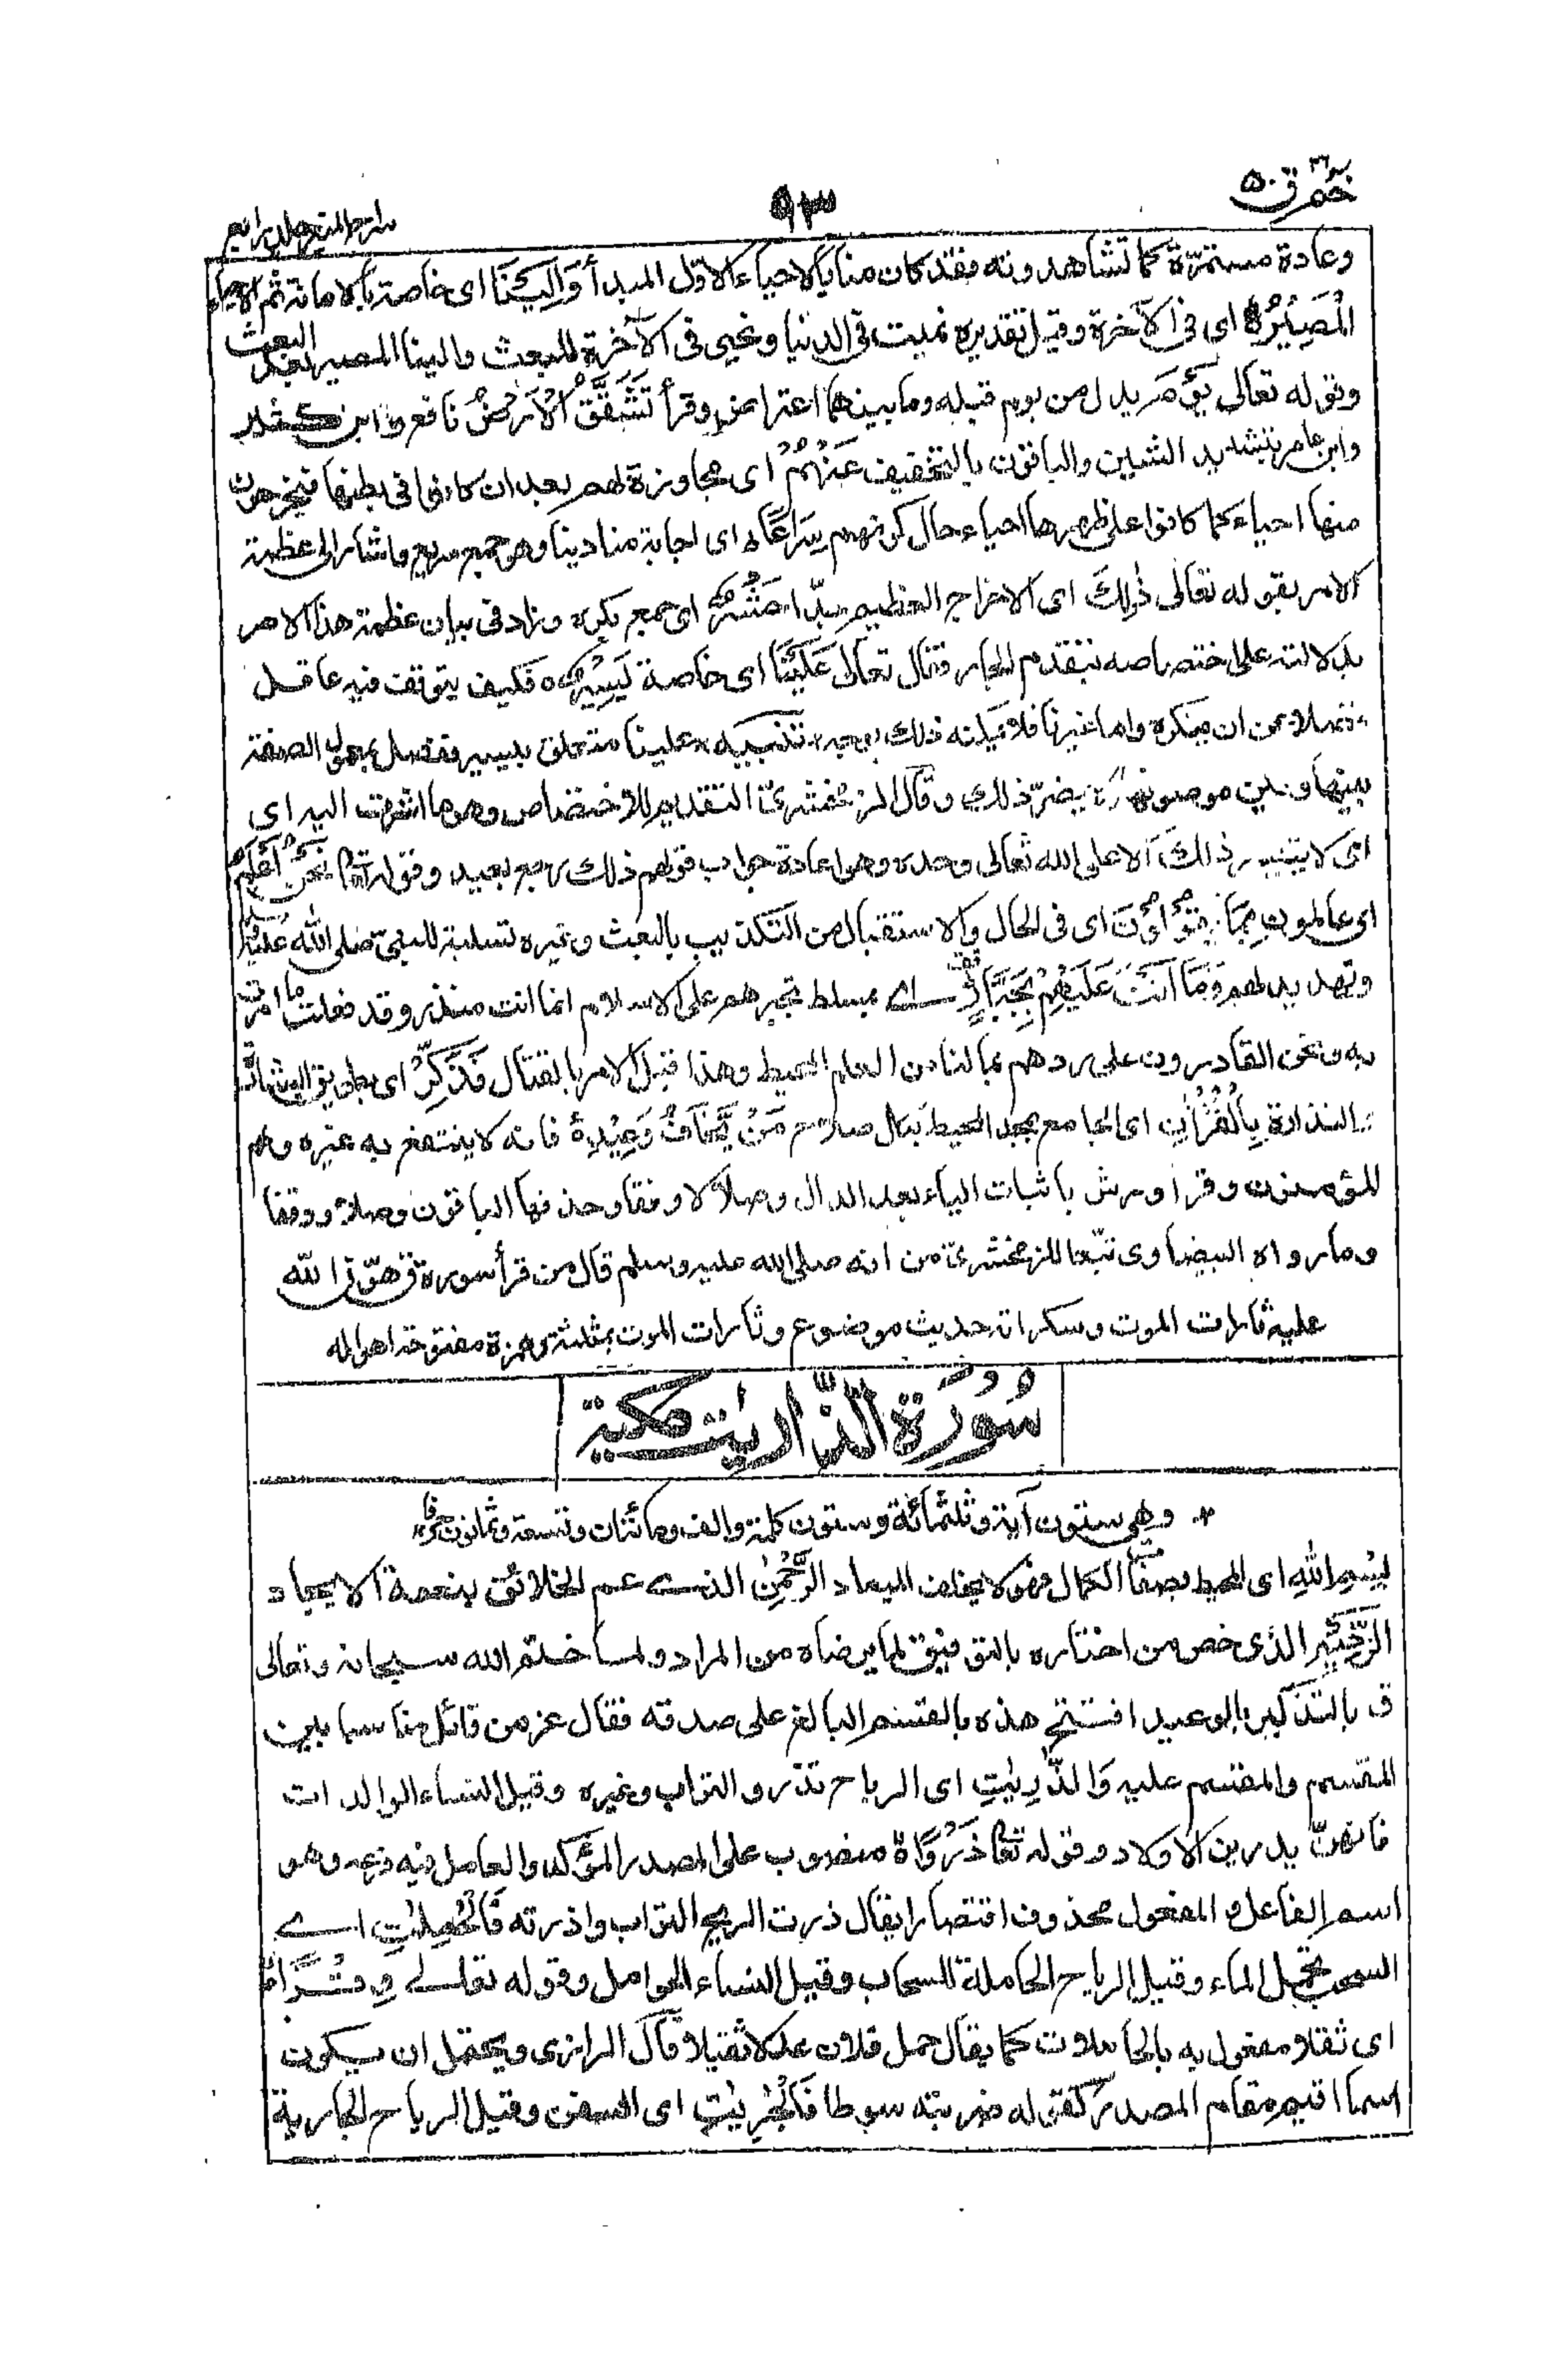 حٰم ق ٥٠
٩٣
وعادة مستمرّة كما تشاهدونه فقد كان منا بالاحياء الاوّل المبدأ وَاِلَيْنَا اى خاصة بالاماتة ثم الاحياء
الْمَصِيْرُ اى فى الآخرة وقيل تقديره نميت فى الدنيا ونحيى فى الآخرة للبعث والينا المصير بعد البعث
وقوله تعالى يَوْمَ بدل من يوم قبله وما بينهما اعتراض وقرأ تَشَقَّقُ الْاَرْضُ نافع وابن كثير
وابن عامر بتشديد الشين والباقون بالتخفيف عَنْهُمْ اى مجاوزة لهم بعد ان كانوا فى بطنها فيخرجون
منها احياء كما كانوا على ظهرها احياء حال كونهم سِرَاعًا اى اجابة منادينا وهو جمع سريع واشار الى عظمة
الامر بقوله تعالى ذٰلِكَ اى الاخراج العظيم جدّا حَشْرٌ اى جمع بكره وزاد فى بيان عظمة هذا الامر
بدلالته على اختصاصه بتقدم الجار فقال تعالى عَلَيْنَا اى خاصة يَسِيْرٌ فكيف يتوقف فيه عاقل
فضلا عن ان ينكره واما غيرنا فلا يمكنه ذلك بوجه تنبيه علينا متعلق بيسير ففصل بمعمول الصفة
بينها وبين موصوفها ولا يضرّ ذلك وقال الزمخشرىّ التقديم للاختصاص وهو ما اشرت اليه اى
اى لا يتيسر ذلك الا على الله تعالى وحده وهو اعادة جواب قولهم ذلك رجع بعيد وقوله تعالى نَحْنُ اَعْلَمُ
اى عالمون بِمَا يَقُوْلُوْنَ اى فى الحال والاستقبال من التكذيب بالبعث وغيره تسلية للنبىّ صلى الله عليه وسلم
وتهديد لهم وَمَا اَنْتَ عَلَيْهِمْ بِجَبَّارٍ اى بمسلط تجبرهم على الاسلام انما انت منذر وقد فعلت ما امرت
به ونحن القادرون على ردهم بما لنا من العلم المحيط وهذا قبل الامر بالقتال فَذَكِّرْ اى بطريق البشارة
والنذارة بِالْقُرْاٰنِ اى الجامع بمجده المحيط بكل صلاح مَنْ يَّخَافُ وَعِيْدِ فانه لا ينتفع به غيره وهم
المؤمنون وقرأ ورش باثبات الياء بعد الدال وصلا لا وقفا وحذفها الباقون وصلا ووقفا
وما رواه البيضاوى تبعا للزمخشرىّ من انه صلى الله عليه وسلم قال من قرأ سورة ق هوّن الله
عليه ثارات الموت وسكراته حديث موضوع وثارات الموت بمثلثة وهمزة مفتوحة اهواله
سُوْرَةُ الذّاريٰت مكية
وهى ستون آية وثلثمائة وستون كلمة والف ومائتان وتسعة وثمانون حرفا
بِسْمِ اللّٰهِ اى المحيط بصفات الكمال فهو لا يخلف الميعاد الرَّحْمٰنِ الذى عم الخلائق بنعمة الايجاد
الرَّحِيْمِ الذى خص من اختاره بالتوفيق لما يرضاه من المراد ولما ختم الله سبحانه وتعالى
ق بالتذكير بالوعيد افتتح هذه بالقسم البالغ على صدقه فقال عز من قائل مناسبا بين
القسم والمقسم عليه وَالذّٰرِيٰتِ اى الرياح تذرو التراب وغيره وقيل النساء الوالدات
فانهنّ يذرين الاولاد وقوله تعالى ذَرْوًا منصوب على المصدر المؤكد والعامل فيه فرعه وهو
اسم الفاعل والمفعول محذوف اقتصارا يقال ذرت الريح التراب واذرته فَالْحٰمِلٰتِ اى
السحب تحمل الماء وقيل الرياح الحاملة للسحاب وقيل النساء الحوامل وقوله تعالى وِقْرًا
اى ثقلا مفعول به بالحاملات كما يقال حمل فلان عدلا ثقيلا قال الرازى ويحتمل ان يكون
اسما اقيم مقام المصدر كقوله ضربته سوطا فَالْجٰرِيٰتِ اى السفن وقيل الرياح الجارية